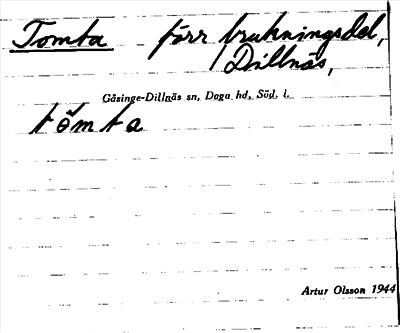 Tomta förr brukningsdel,
Dillnäs,
Gåsinge-Dillnäs sn, Daga hd, Söd. l.
tômta
Artur Olsson 1944